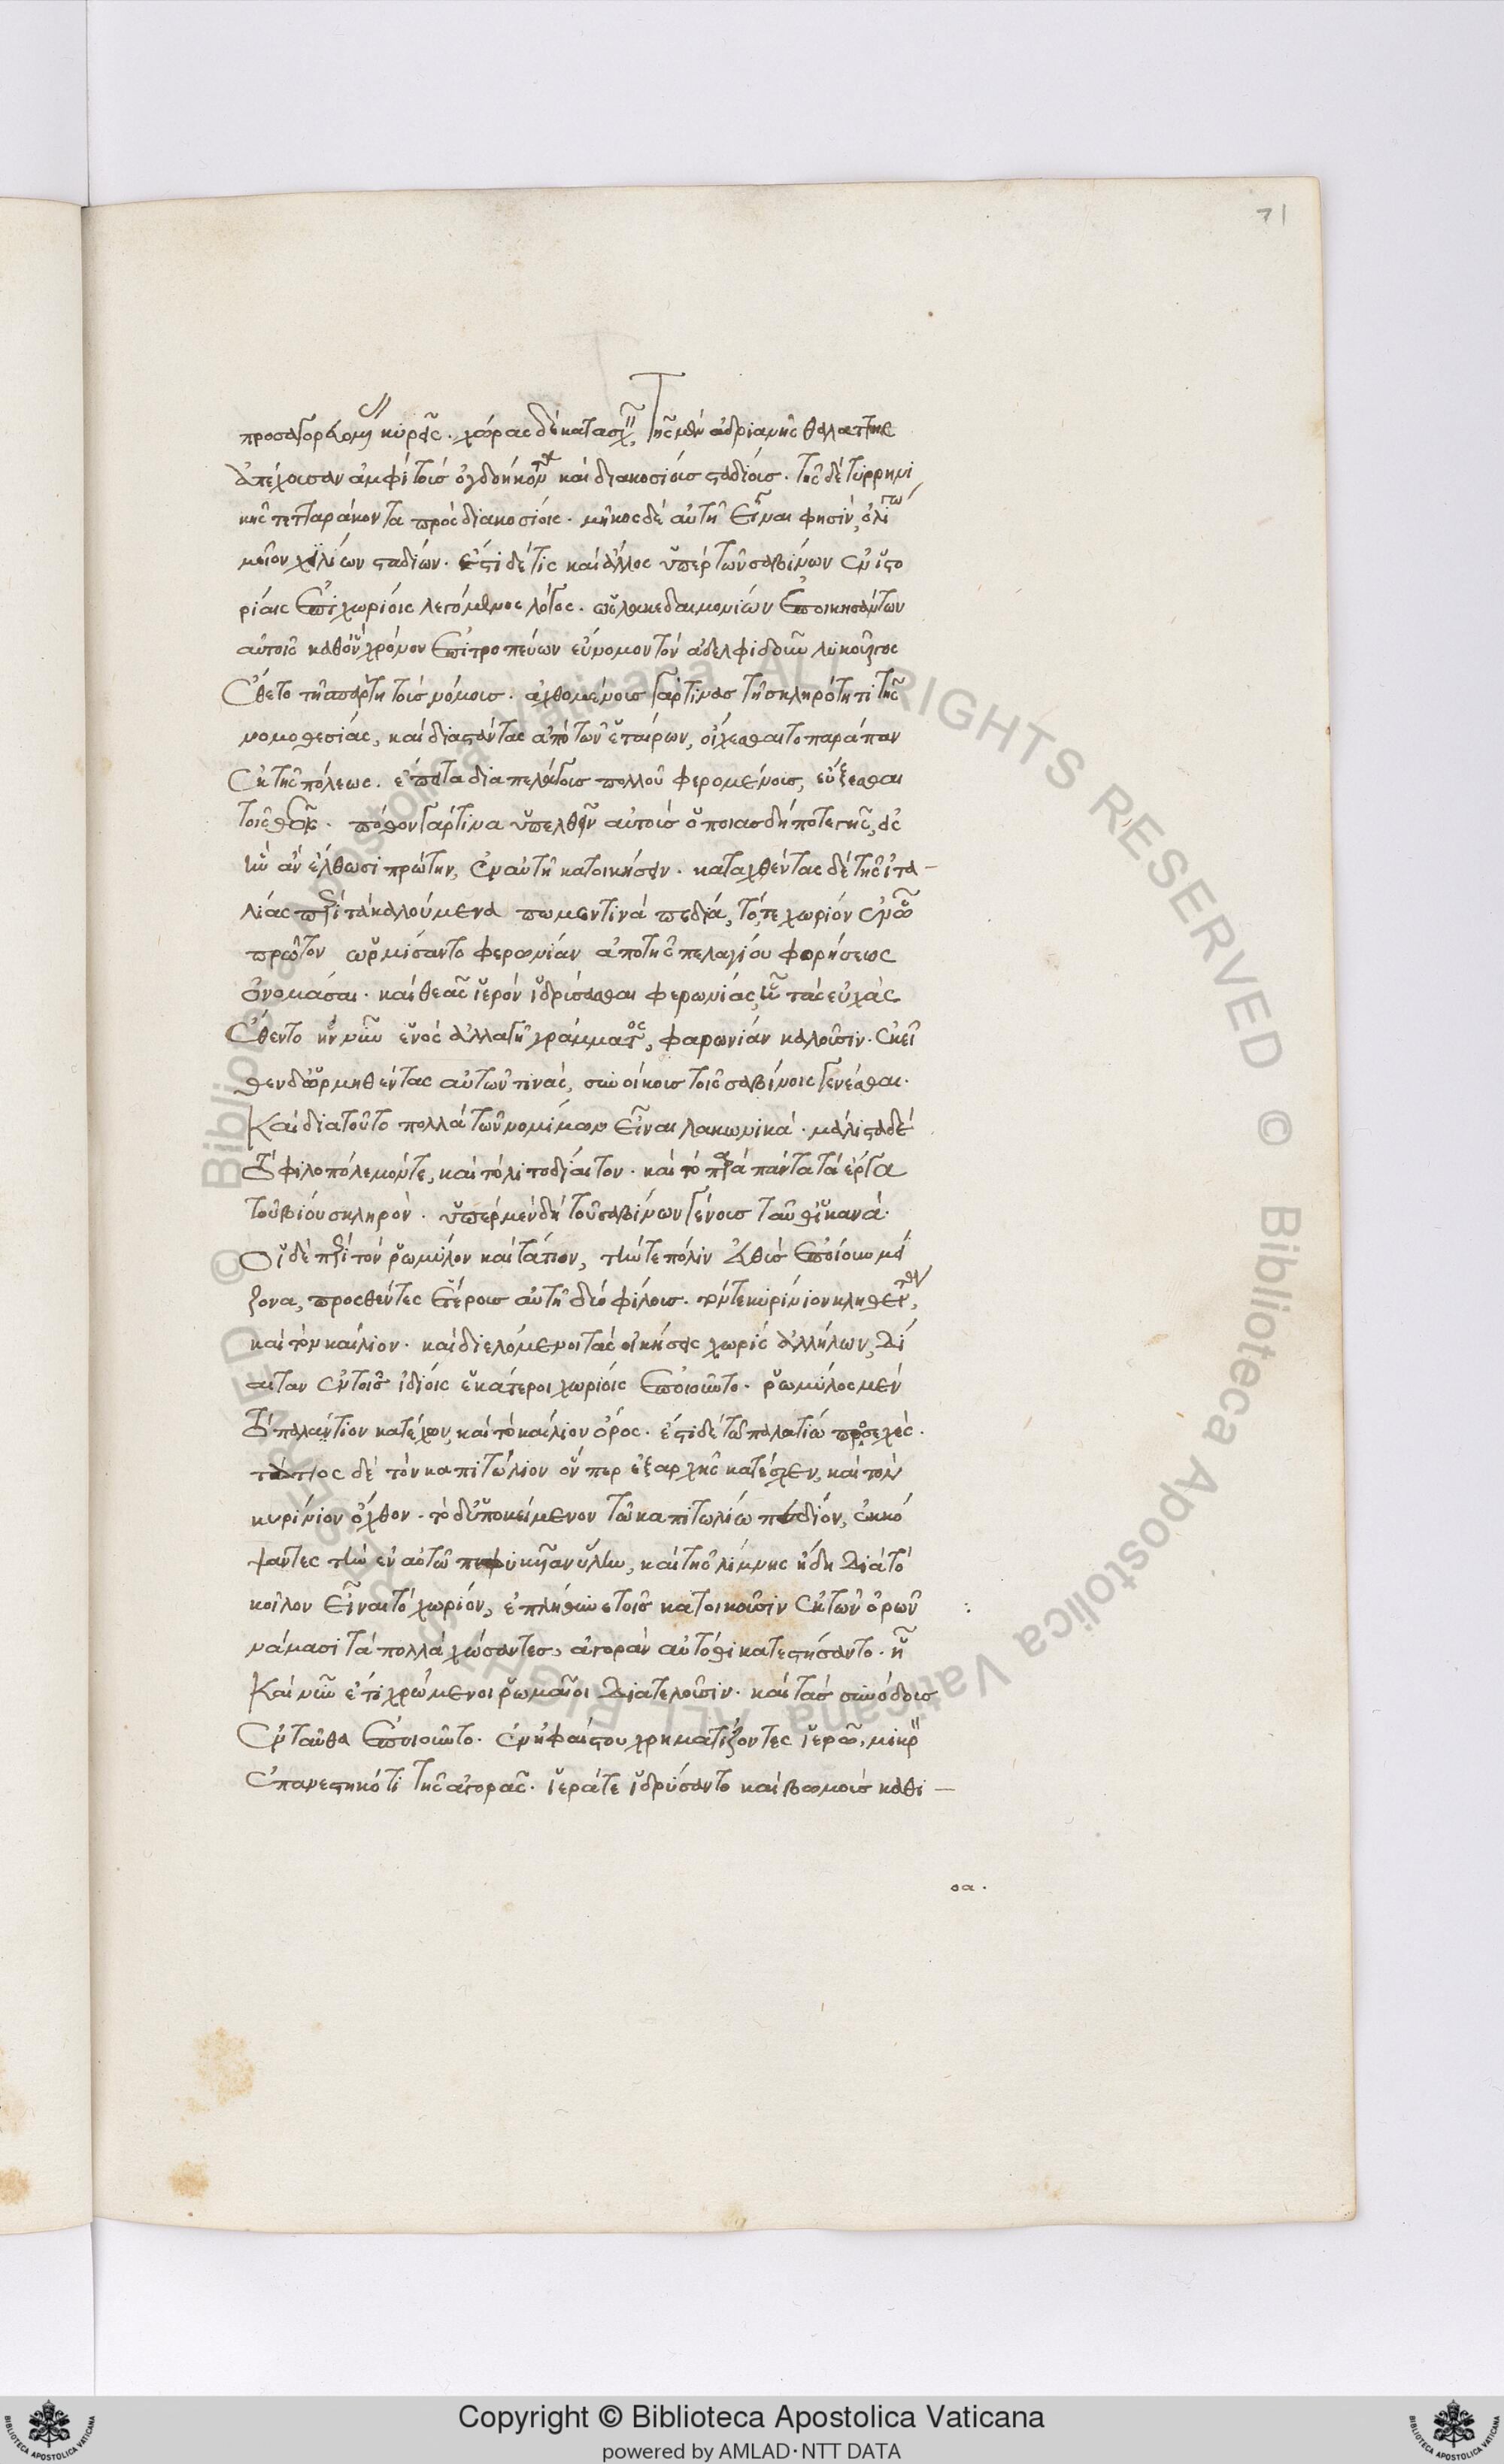 71
προσαγορευομένη κύρης. χώρας δὲ κατασχεῖν, τῆς μὲν ἀδριανῆς θαλάττης
ἀπέχουσαν ἀμφὶ τοὺς ὀγδοήκοντα καὶ διακοσίοις σταδίοις. τῆς δὲ τυρρηνι
κῆς τετταράκοντα πρὸς διακοσίοις. μῆκος δὲ αὐτῆς εἶναί φησιν, ὀλίγω
μεῖον χιλίων σταδίων. ἔστι δέ τις καὶ ἄλλος ὑπὲρ τῶν σαβίνων ἐν ἱστο
ρίαις ἐπιχωρίοις λεγόμενος λόγος. ὡς λακεδαιμονίων ἐποικησάντων
αὐτοῖς καθ' ὃν χρόνον ἐπιτροπεύων εὔνομον τὸν ἀδελφιδοῦν λυκοῦργος
ἔθετο τῇ σπάρτῃ τοὺς νόμους. ἀχθομένους γάρ τινας τῇ σκληρότητι τῆς
νομοθεσίας, καὶ διαστάντας ἀπὸ τῶν ἑταίρων, οἴχεσθαι τὸ παράπαν
ἐκ τῆς πόλεως. ἔπειτα διὰ πελάγους πολλοῦ φερομένους, εὔξεσθαι
τοῖς θεοῖς. πόθον γάρ τινα ὑπελθεῖν αὐτοὺς ὁποιασδήποτε γῆς, εἰς
ἣν ἂν ἔλθωσι πρώτην, ἐν αὐτῇ κατοικήσειν. καταχθέντας δὲ τῆς ἰτα-
λίας περὶ τὰ καλούμενα πωμεντινὰ πεδία, τό,τε χωρίον ἐν ᾧ
πρῶτον ὡρμίσαντο φερωνίαν ἀπὸ τῆς πελαγίου φορήσεως
ὀνομάσαι. καὶ θεᾶς ἱερὸν ἱδρύσασθαι φερωνίας, ᾗ τὰς εὐχὰς
ἔθεντο ἣν νῦν ἑνὸς ἀλλαγῇ γράμματος, φαρωνίαν καλοῦσιν. ἐκεῖ
θεν δ' ὁρμηθέντας αὐτῶν τινάς, συνοίκους τοῖς σαβίνοις γενέσθαι.
Καὶ διὰ τοῦτο πολλὰ τῶν νομίμων εἶναι λακωνικά. μάλιστα δὲ
τὸ φιλοπόλεμόν τε, καὶ τὸ λιτοδίαιτον. καὶ τὸ παρὰ πάντα τὰ ἔργα
τοῦ βίου σκληρόν. ὑπὲρ μὲν δὴ τοῦ σαβίνων γένους ταῦθ' ἱκανά.
Οἱ δὲ περὶ τὸν ῥωμύλον καὶ τάτιον, τήν τε πόλιν εὐθὺς ἐποίουν μεί
ζονα, προσθέντες ἑτέρους αὐτῇ δύο φίλους. τόν τε κυρίνιον κληθέντα,
καὶ τὸν καίλιον. καὶ διελόμενοι τὰς οἰκήσεις χωρὶς ἀλλήλων, δί
αιταν ἐν τοῖς ἰδίοις ἑκάτεροι χωρίοις ἐποιοῦντο. ῥωμύλος μὲν
τὸ παλάντιον κατέχων, καὶ τὸ καίλιον ὄρος. ἔστι δὲ τῶ παλατίω προσεχές.
τάτιος δὲ τὸν καπιτώλιον ὅνπερ ἐξ ἀρχῆς κατέσχεν, καὶ τὸν
κυρίνιον ὄχθον. τὸ δ' ὑποκείμενον τῶ καπιτωλίω πεδίον, ἐκκό
ψαντες τὴν ἐν αὐτῶ πεφυκυῖαν ὕλην, καὶ τῆς λίμνης ἣ δὴ διὰ τὸ
κοῖλον εἶναι τὸ χωρίον, ἐπλήθυνε τοῖς κατιοῦσιν ἐκ τῶν ὀρῶν
νάμασι τὰ πολλὰ χώσαντες, ἀγορὰν αὐτόθι κατεστήσαντο. ᾗ
Καὶ νῦν ἔτι χρώμενοι ῥωμαῖοι διατελοῦσιν. καὶ τὰς συνόδους
ἐνταῦθα ἐποιοῦντο. ἐν ἡφαίστου χρηματίζοντες ἱερῶ, μικρὸν
ἐπανεστηκότι τῆς ἀγορᾶς. ἱερά τε ἱδρύσαντο καὶ βωμοὺς καθι-
οα.
Copyright © Biblioteca Apostolica Vaticana
powered by AMLAD·NTT DATA